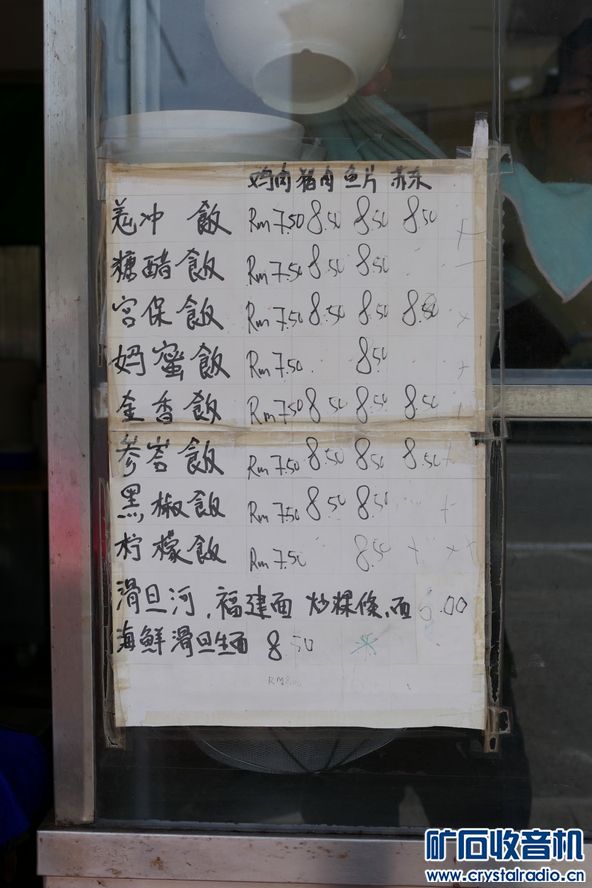 鸡肉 猪肉 鱼片 苏东
羌冲 飯 Rm7.50 8.50 8.50 8.50
糖醋飯 Rm7.50 8.50 8.50
宫保飯 Rm7.50 8.50 8.50 8.50
妈蜜飯 Rm7.50 8.50
金香飯 Rm7.50 8.50 8.50 8.50
参峇飯 Rm7.50 8.50 8.50 8.50
黑椒飯 Rm7.50 8.50 8.50
柠檬飯 Rm7.50 8.50
滑旦河,福建面 炒粿條,面 6.00
海鮮滑旦生面 8.50
矿石收音机
www.crystalradio.cn